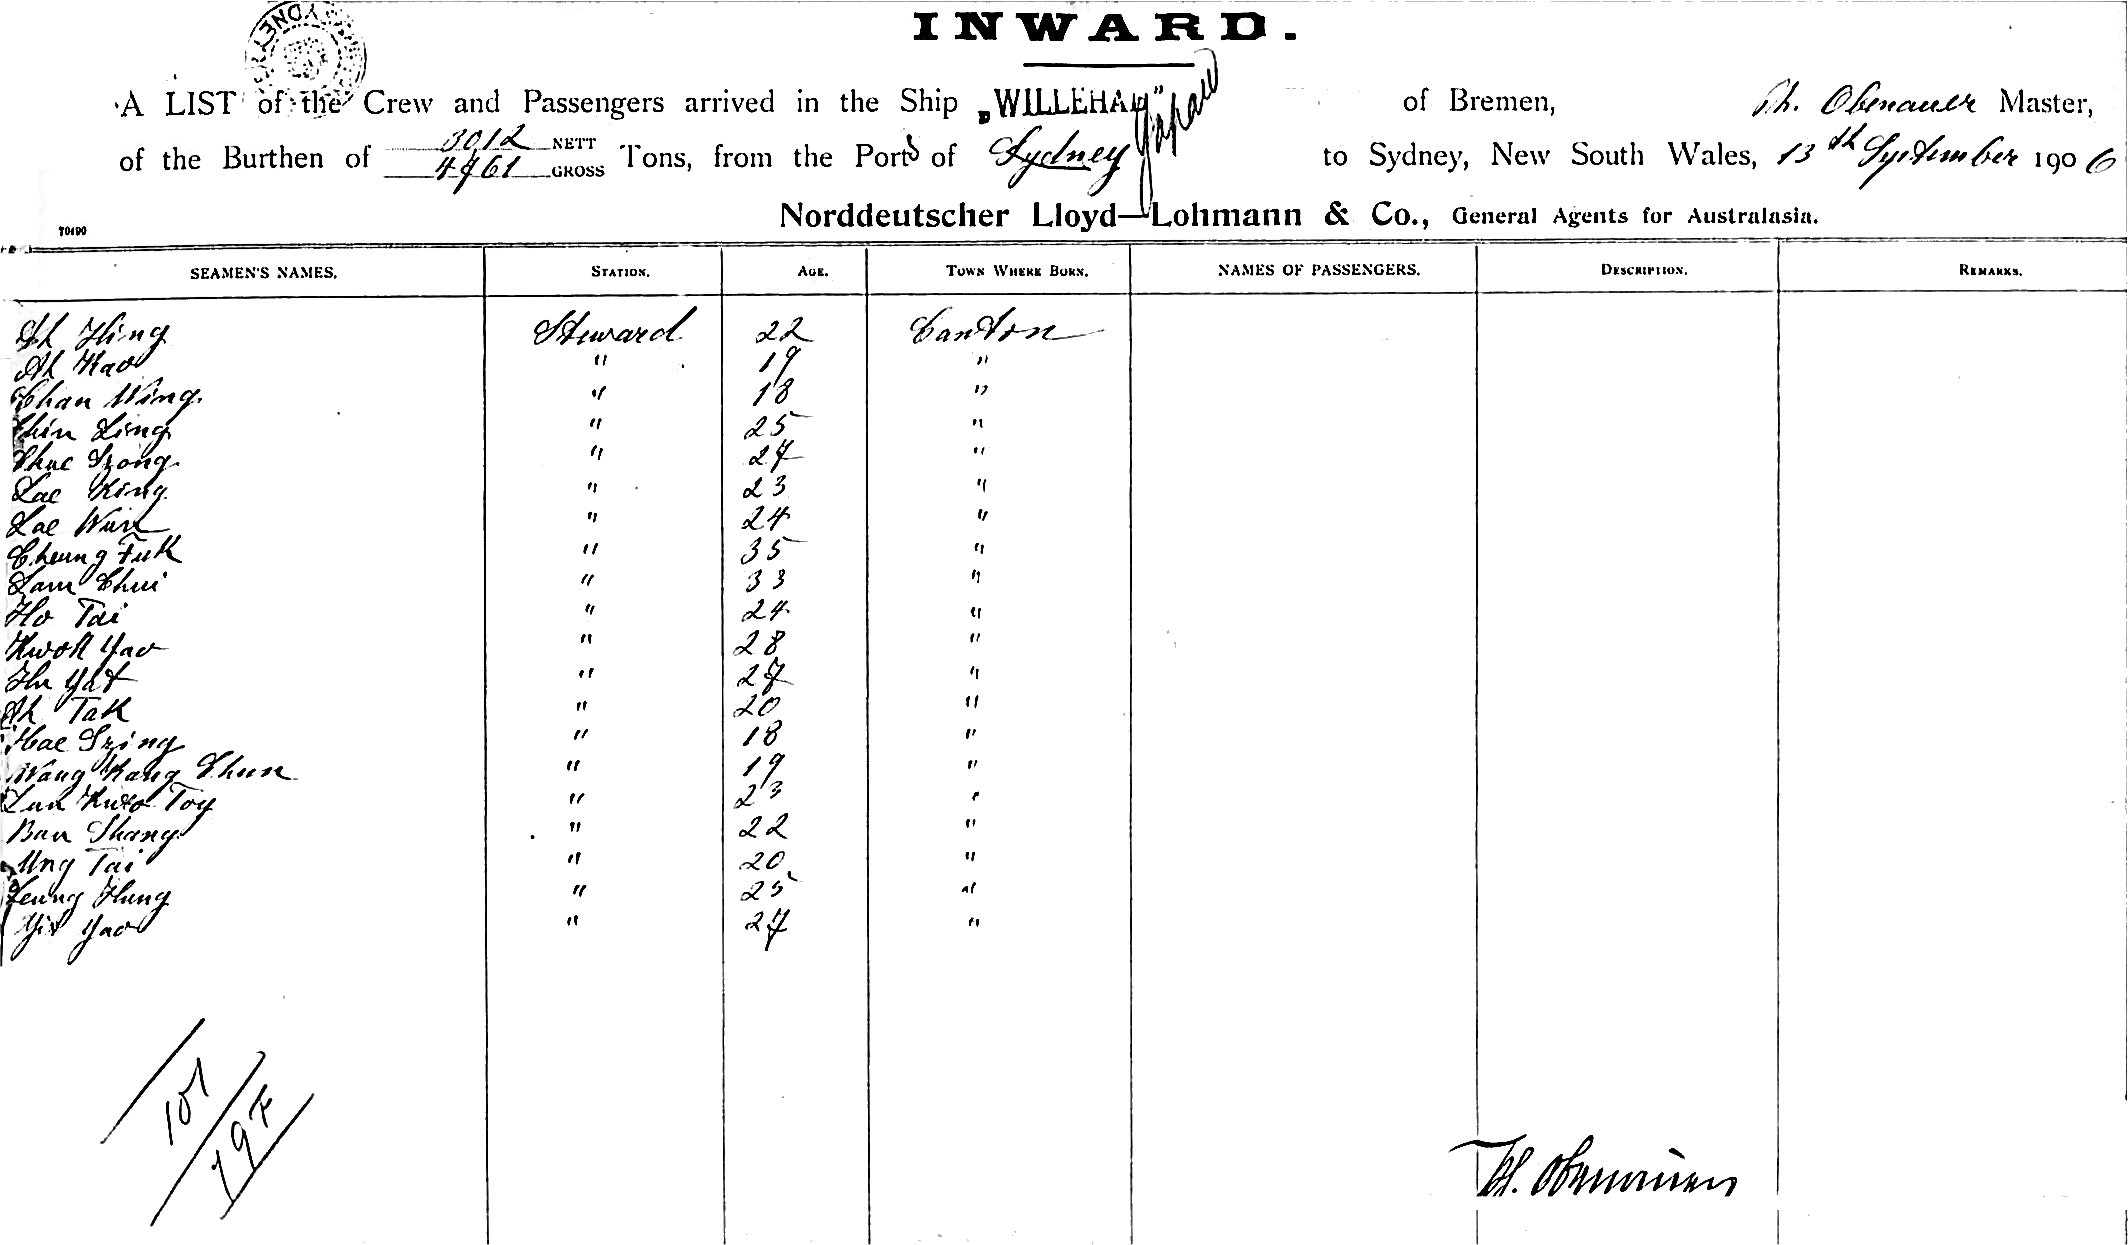 SYDNEY
INWARD.
A LIST of the Crew and Passengers arrived in the Ship „WILLEHAD" of Bremen, Th. Obenauer Master,
of the Burthen of 3012 NETT 4761 GROSS Tons, from the Ports of Sydney Japan to Sydney, New South Wales, 13th September 1906
Norddeutscher Lloyd—Lohmann & Co., General Agents for Australasia.
70190
SEAMEN'S NAMES. STATION. AGE. TOWN WHERE BORN. NAMES OF PASSENGERS. DESCRIPTION. REMARKS.
Ah Hing Steward 22 Canton
Ah Kao " 19 "
Chan Wing " 18 "
Chin Ling " 25 "
Chue Szong " 27 "
Lae King " 23 "
Lae Wun " 24 "
Cheung Fuk " 35 "
Lam Chui " 33 "
Ho Tai " 24 "
Kwok Yao " 28 "
Hu Yat " 27 "
Ah Tak " 20 "
Mae Szing " 18 "
Wang Kang Chun " 19 "
Lun Kuto Toy " 23 "
Ban Shang " 22 "
Ung Tai " 20 "
Leung Hung " 25 "
Yit Yao " 27 "
107
197
Th. Obenauer